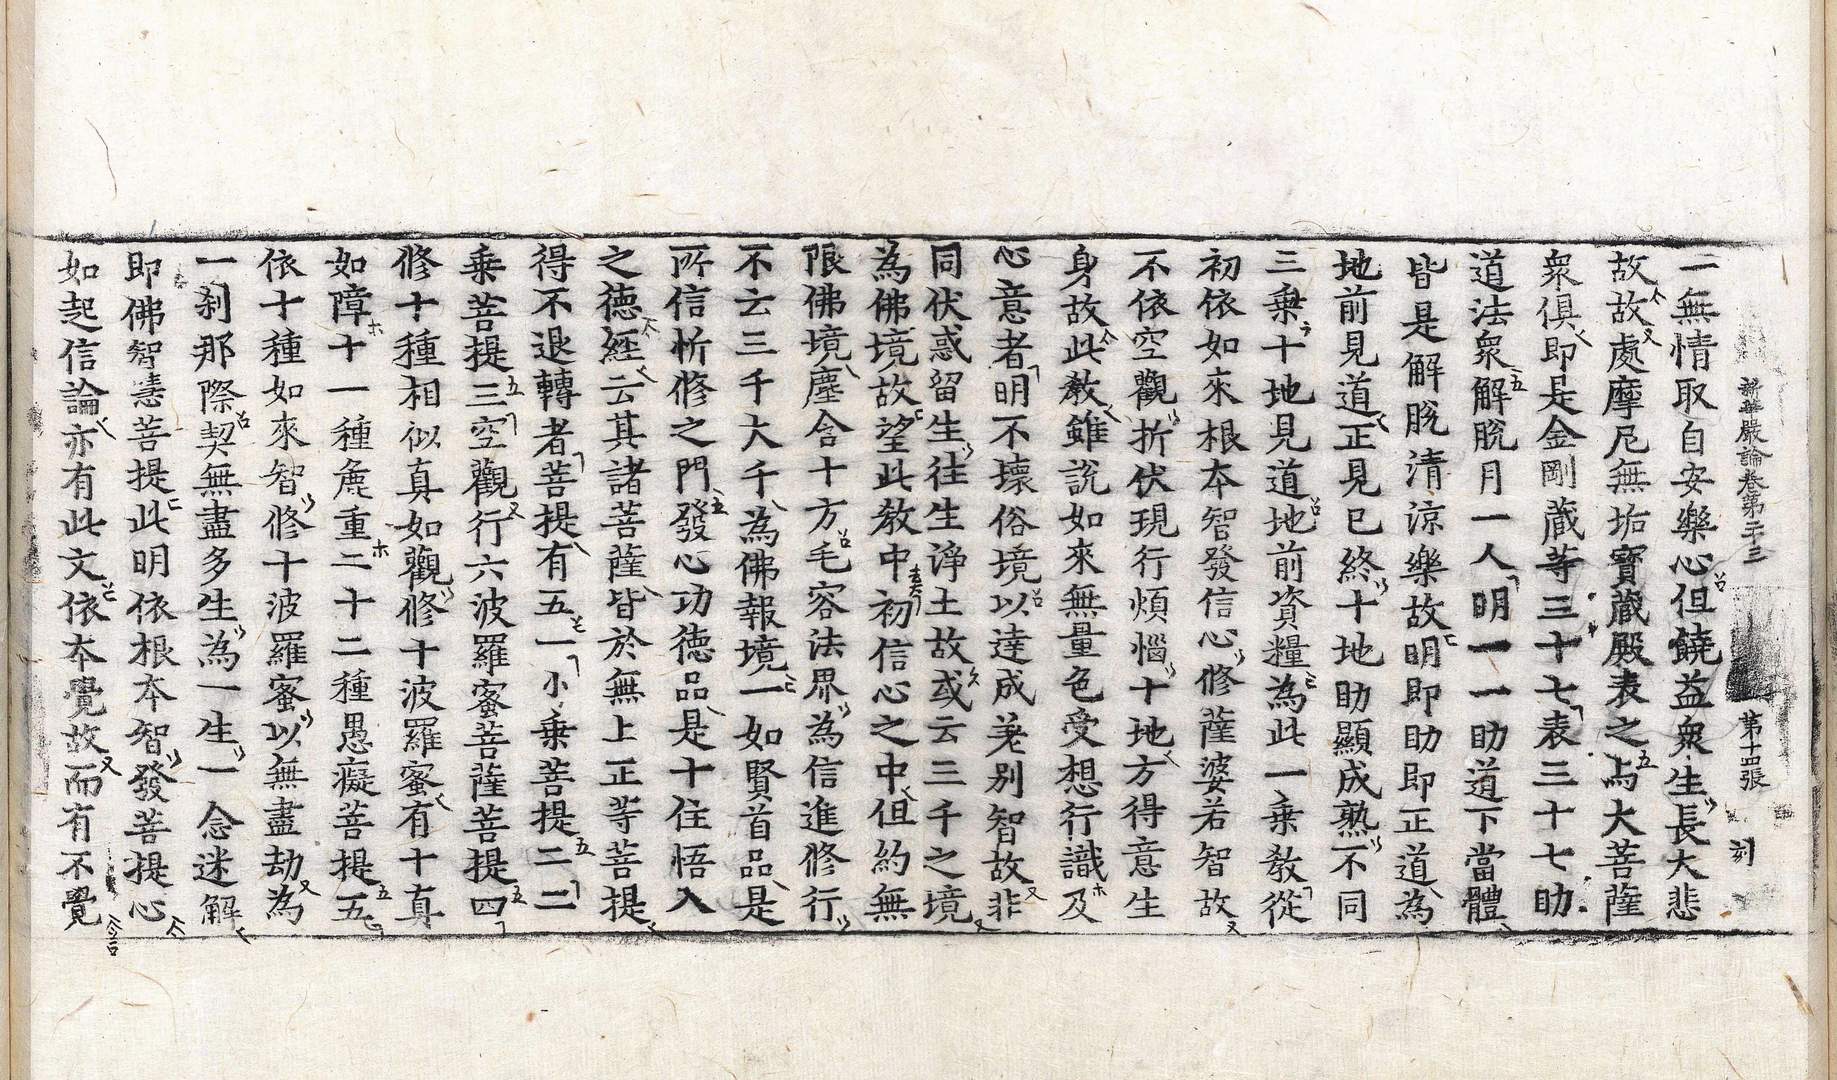 新華嚴論卷第二十三 第十四張 刻
一無情取自安樂心但饒益衆生長大悲
故故處摩尼無垢寶藏殿表之爲大菩薩
衆俱即是金剛藏等三十七表三十七助
道法衆解脫月一人明一一助道下當體
皆是解脫清涼樂故明即助即正道為
地前見道正見已終十地助顯成熟不同
三乗十地見道地前資糧為此一乗教從
初依如來根本智發信心修薩婆若智故
不依空觀折伏現行煩惱十地方得意生
身故此教雖說如來無量色受想行識及
心意者明不壞俗境以達成差別智故非
同伏惑留生往生淨土故或云三千之境
為佛境故望此教中初信心之中但約無
限佛境塵含十方毛容法界為信進修行
不云三千大千為佛報境一如賢首品是
所信忻修之門發心功德品是十住悟入
之德經云其諸菩薩皆於無上正等菩提
得不退轉者菩提有五一小乗菩提二二
乗菩提三空觀行六波羅蜜菩薩菩提四
修十種相似真如觀修十波羅蜜有十真
如障十一種麁重二十二種愚癡菩提五
依十種如來智修十波羅蜜以無盡劫為
一刹那際契無盡多生為一生一念迷解
即佛智慧菩提此明依根本智發菩提心
如起信論亦有此文依本覺故而有不覺